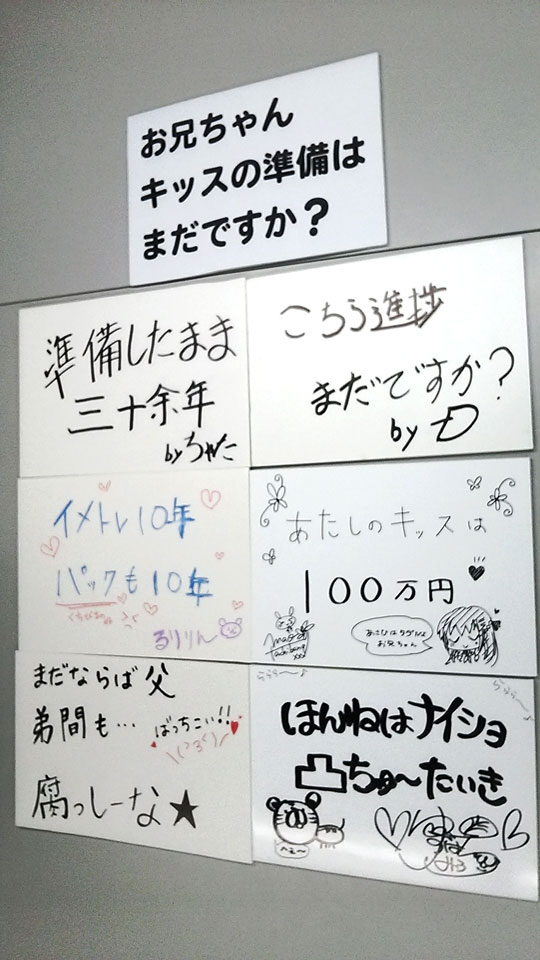 お兄ちゃん
キッスの準備は
まだですか?
準備したまま
三十余年
byちゃた
こちら進捗
まだですか?
by D
イメトレ10年
パックも10年
るりりん
あたしのキッスは
100万円
お兄ちゃん
まだならば父
弟間も…
ばっちこい!!
腐っしーな★
ららら〜♪
ららら〜♪
ほんねはナイショ
凸ちゅ〜たいき
へぇ〜